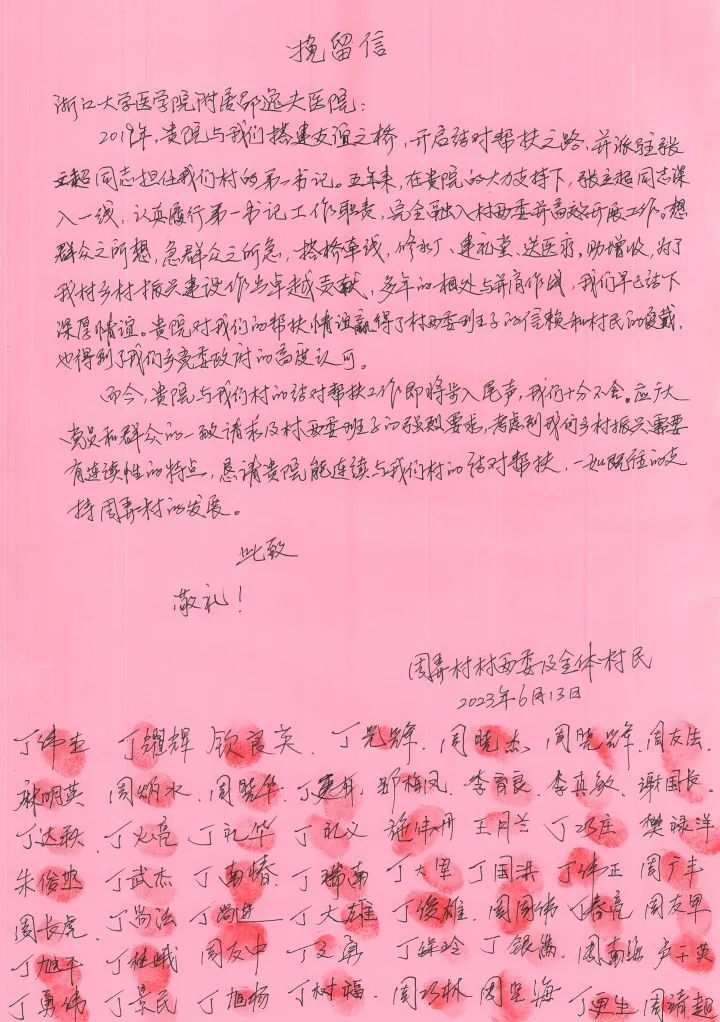 挽留信
浙江大学医学院附属邵逸夫医院：
2019年，贵院与我们搭建友谊之桥，开启结对帮扶之路，并派驻张
立超同志担任我们村的第一书记。五年来，在贵院的大力支持下，张立超同志深
入一线，认真履行第一书记工作职责，完全融入村两委并高效开展工作。想
群众之所想，急群众之所急，搭桥牵线，修水厂、建礼堂、送医疗、助增收，为了
我村乡村振兴建设作出卓越贡献，多年的相处与并肩作战，我们早已结下
深厚情谊。贵院对我们的帮扶情谊赢得了村两委班子的信赖和村民的爱戴，
也得到了我们乡党委政府的高度认可。
而今，贵院与我们村的结对帮扶工作即将步入尾声，我们十分不舍。应广大
党员和群众的一致请求及村两委班子的强烈要求，考虑到我们乡村振兴需要
有连续性的特点，恳请贵院能连续与我们村的结对帮扶，一如既往的支
持周弄村的发展。
此致
敬礼！
周弄村村两委及全体村民
2023年6月13日
丁耀辉 钦良英 丁光辉 周晓杰 周晓辉 周友法
周炳水 周晓华 邬梅凤 李育良 李真敏 谢国长
丁达秋 丁必亮 丁礼华 丁礼义 施伟珊 王月兰 丁巧庄 樊禄洋
朱俊旭 丁武杰 丁南椿 丁瑞南 丁大军 丁国洪 丁伟正 周广丰
周长虎 丁尚法 丁尚进 丁大雄 丁俊雄 周国伟 丁春亮 周友军
丁旭平 丁桂娥 周友中 丁文勇 丁银满 周南海 卢千英
丁勇伟 丁景民 丁旭杨 丁树福 周巧林 周呈海 丁更生 周靖超